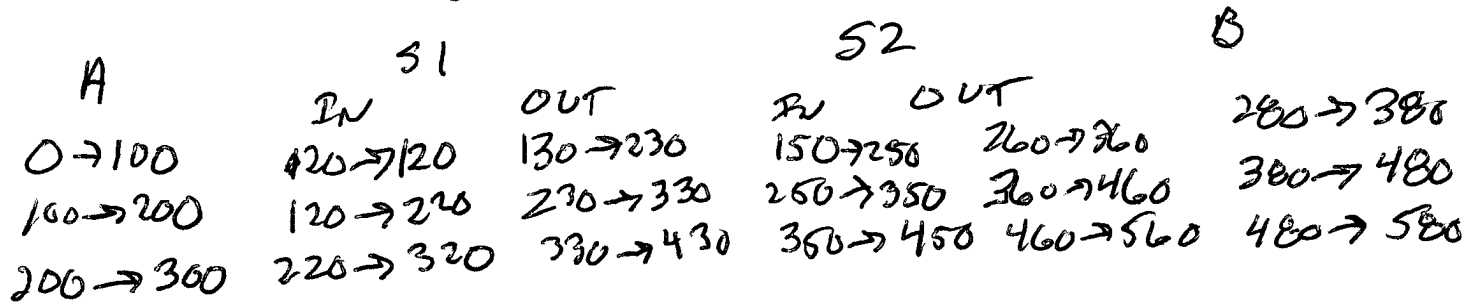 A S1 S2 B
IN OUT IN OUT
0→100 20→120 130→230 150→250 260→360 280→380
100→200 120→220 230→330 250→350 360→460 380→480
200→300 220→320 330→430 350→450 460→560 480→580